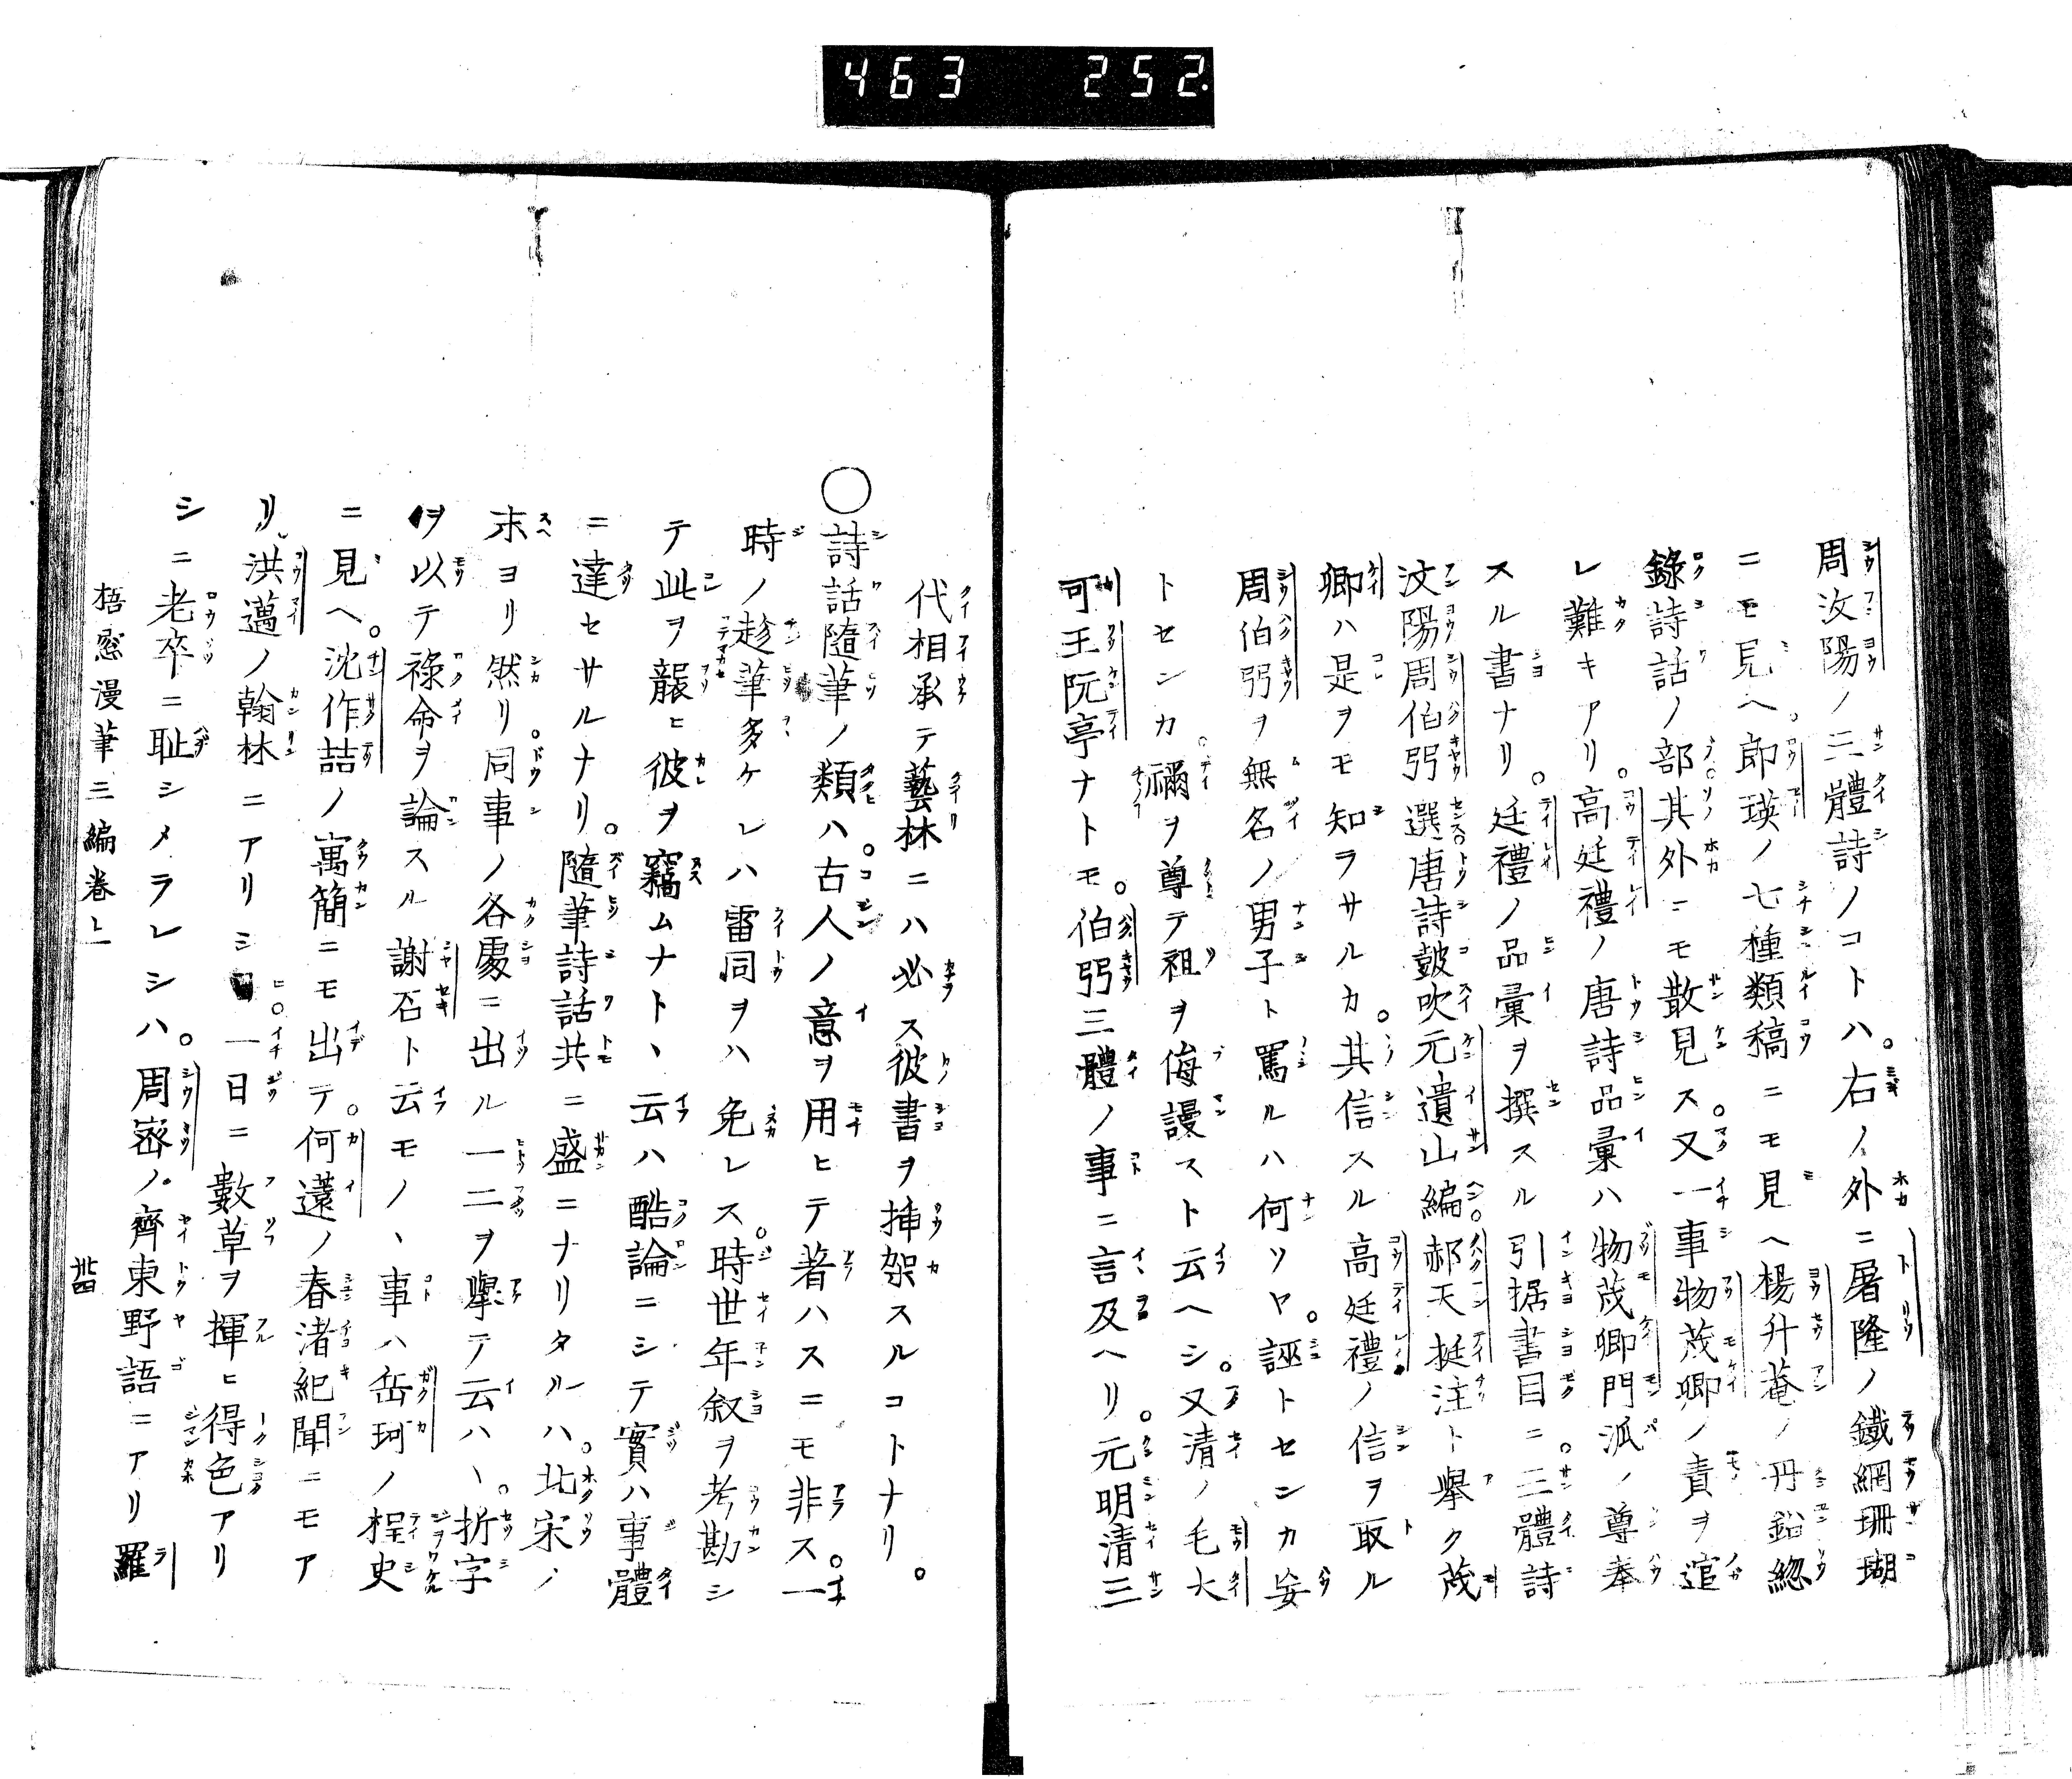 463 252.
周汝陽ノ三體詩ノコトハ。右ノ外ニ屠隆ノ鐵網珊瑚
ニモ見ヘ。郎瑛ノ七種類稿ニモ見ヘ楊升菴ノ丹鉛總
錄詩話ノ部其外ニモ散見ス。又一事物茂卿ノ責ヲ逭
レ難キアリ。高廷禮ノ唐詩品彙ハ物茂卿門派ノ尊奉
スル書ナリ。廷禮ノ品彙ヲ撰スル引据書目ニ。三體詩
汶陽周伯弜選唐詩皷吹元遺山編。郝天挺注ト擧ク茂
卿ハ是ヲモ知ラサルカ。其信スル高廷禮ノ信ヲ取ル
周伯弜ヲ無名ノ男子ト罵ルハ何ソヤ。誣トセンカ妄
トセンカ。禰ヲ尊テ祖ヲ侮謾スト云ヘシ。又清ノ毛大
可王阮亭ナトモ。伯弜三體ノ事ニ言及ヘリ。元明清三
代相承テ藝林ニハ必ス彼書ヲ挿架スルコトナリ。
〇詩話隨筆ノ類ハ。古人ノ意ヲ用ヒテ著ハスニモ非ス。一
時ノ趁筆多ケレハ雷同ヲハ免レス。時世年叙ヲ考勘シ
テ此ヲ襲ヒ彼ヲ竊ムナト、云ハ酷論ニシテ實ハ事體
ニ達セサルナリ。隨筆詩話共ニ盛ニナリタルハ。北宋ノ
末ヨリ然リ。同事ノ各處ニ出ル一二ヲ擧テ云ハ、。折字
ヲ以テ祿命ヲ論スル謝石ト云モノ、事ハ岳珂ノ桯史
ニ見ヘ。沈作喆ノ寓簡ニモ出テ。何薳ノ春渚紀聞ニモア
リ。洪邁ノ翰林ニアリシ。一日ニ數草ヲ揮ヒ得色アリ
シニ老卒ニ耻シメラレシハ。周宻ノ齊東野語ニアリ羅
梧窓漫筆三編卷上
卅四